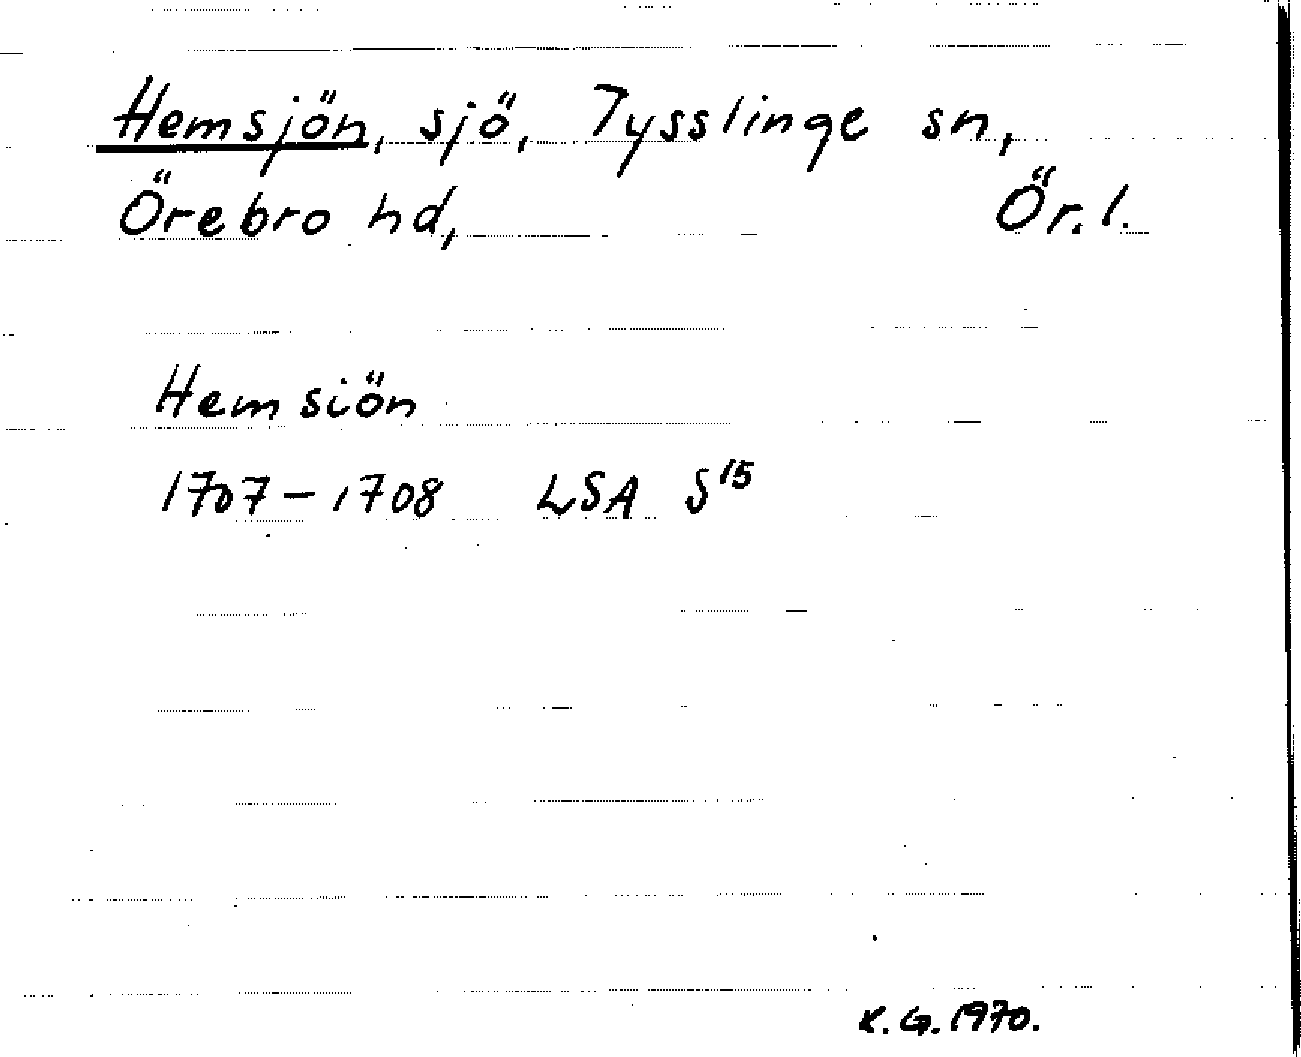 Hemsjön, sjö, Tysslinge sn,
Örebro hd, Ör.l.
Hemsiön
1707-1708 LSA S15
K.G.1970.